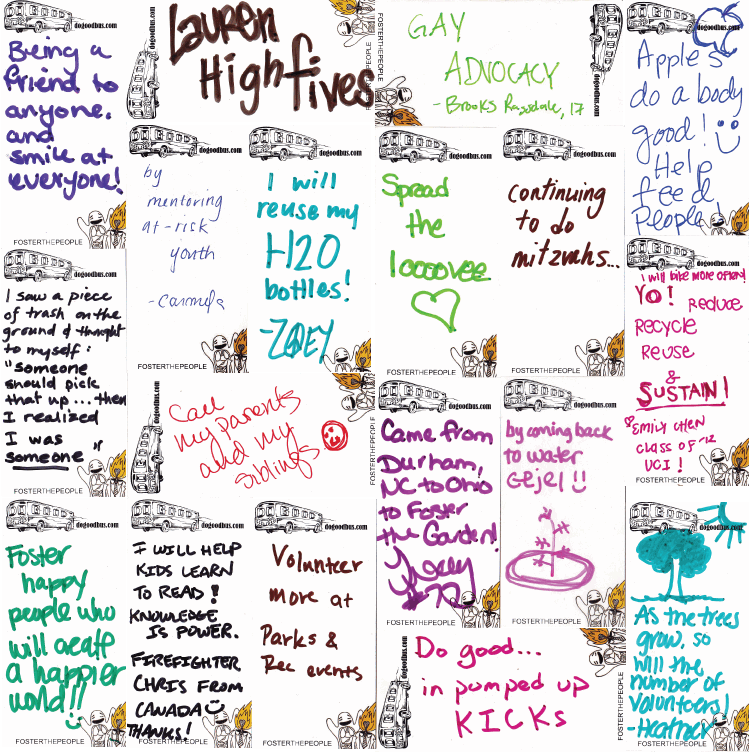 dogoodbus.com
Being a
friend to
anyone.
and
smile at
everyone!
FOSTERTHEPEOPLE
dogoodbus.com
Lauren
High fives
FOSTERTHEPEOPLE
dogoodbus.com
GAY
ADVOCACY
- Brooks Ragsdale, 17
FOSTERTHEPEOPLE
dogoodbus.com
Apple's
do a body
good!
Help
feed
People!
FOSTERTHEPEOPLE
dogoodbus.com
by
mentoring
at-risk
youth
- Carmela
FOSTERTHEPEOPLE
dogoodbus.com
I will
reuse my
H2O
bottles!
-ZOEY
FOSTERTHEPEOPLE
dogoodbus.com
Spread
the
loooovee
FOSTERTHEPEOPLE
dogoodbus.com
continuing
to do
mitzvahs...
FOSTERTHEPEOPLE
dogoodbus.com
I saw a piece
of trash on the
ground & thought
to myself:
"someone
should pick
that up... then
I realized
I was
someone"
FOSTERTHEPEOPLE
dogoodbus.com
call
my parents
and my
siblings
FOSTERTHEPEOPLE
dogoodbus.com
Came from
Durham,
NC to Ohio
to Foster
the Garden!
FOSTERTHEPEOPLE
dogoodbus.com
by coming back
to water
Gejel !!
FOSTERTHEPEOPLE
dogoodbus.com
I will bike more often!
YO! REDUCE
RECYCLE
REUSE
&
SUSTAIN!
EMILY CHEN
CLASS OF '12
UCI!
FOSTERTHEPEOPLE
dogoodbus.com
Foster
happy
people who
will creatt
a happier
world!!
FOSTERTHEPEOPLE
dogoodbus.com
I WILL HELP
KIDS LEARN
TO READ!
KNOWLEDGE
IS POWER.
FIREFIGHTER
CHRIS FROM
CANADA
THANKS!
FOSTERTHEPEOPLE
dogoodbus.com
Volunteer
more at
Parks &
Rec events
FOSTERTHEPEOPLE
dogoodbus.com
Do good...
in pumped up
KICKS
FOSTERTHEPEOPLE
dogoodbus.com
As the trees
grow, so
will the
number of
volunteers!
-Heather
FOSTERTHEPEOPLE